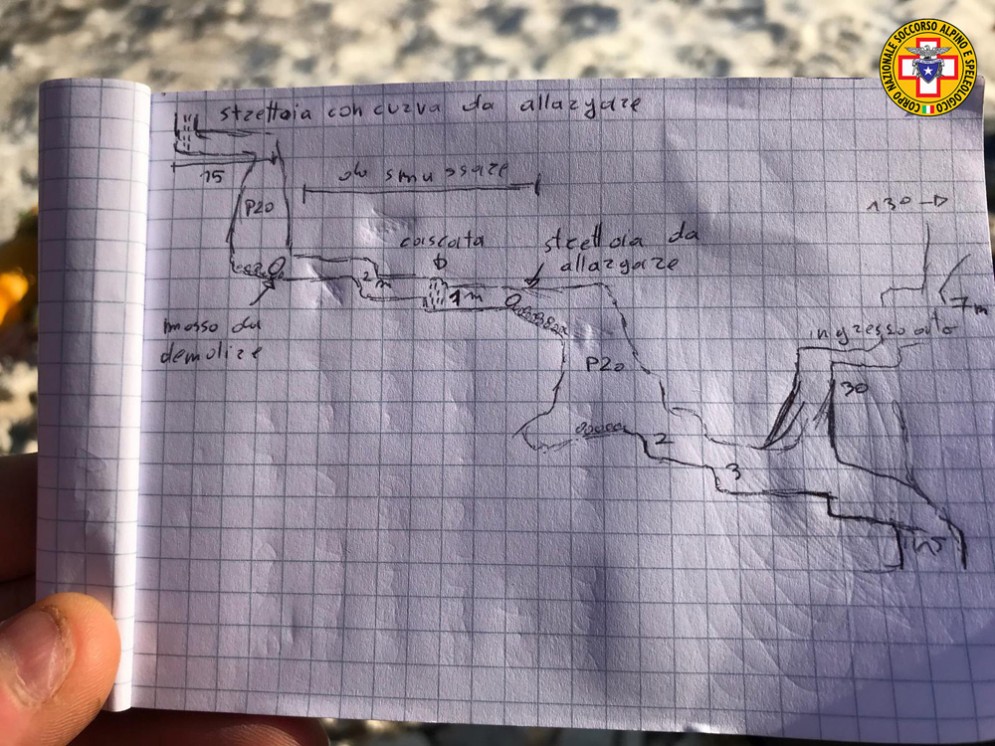 CORPO NAZIONALE SOCCORSO ALPINO E SPELEOLOGICO
strettoia con curva da allargare
15
da smussare
P20
130
cascata
strettoia da
allargare
2 m
1 m
7 m
masso da
demolire
ingresso alto
P20
30
2
3